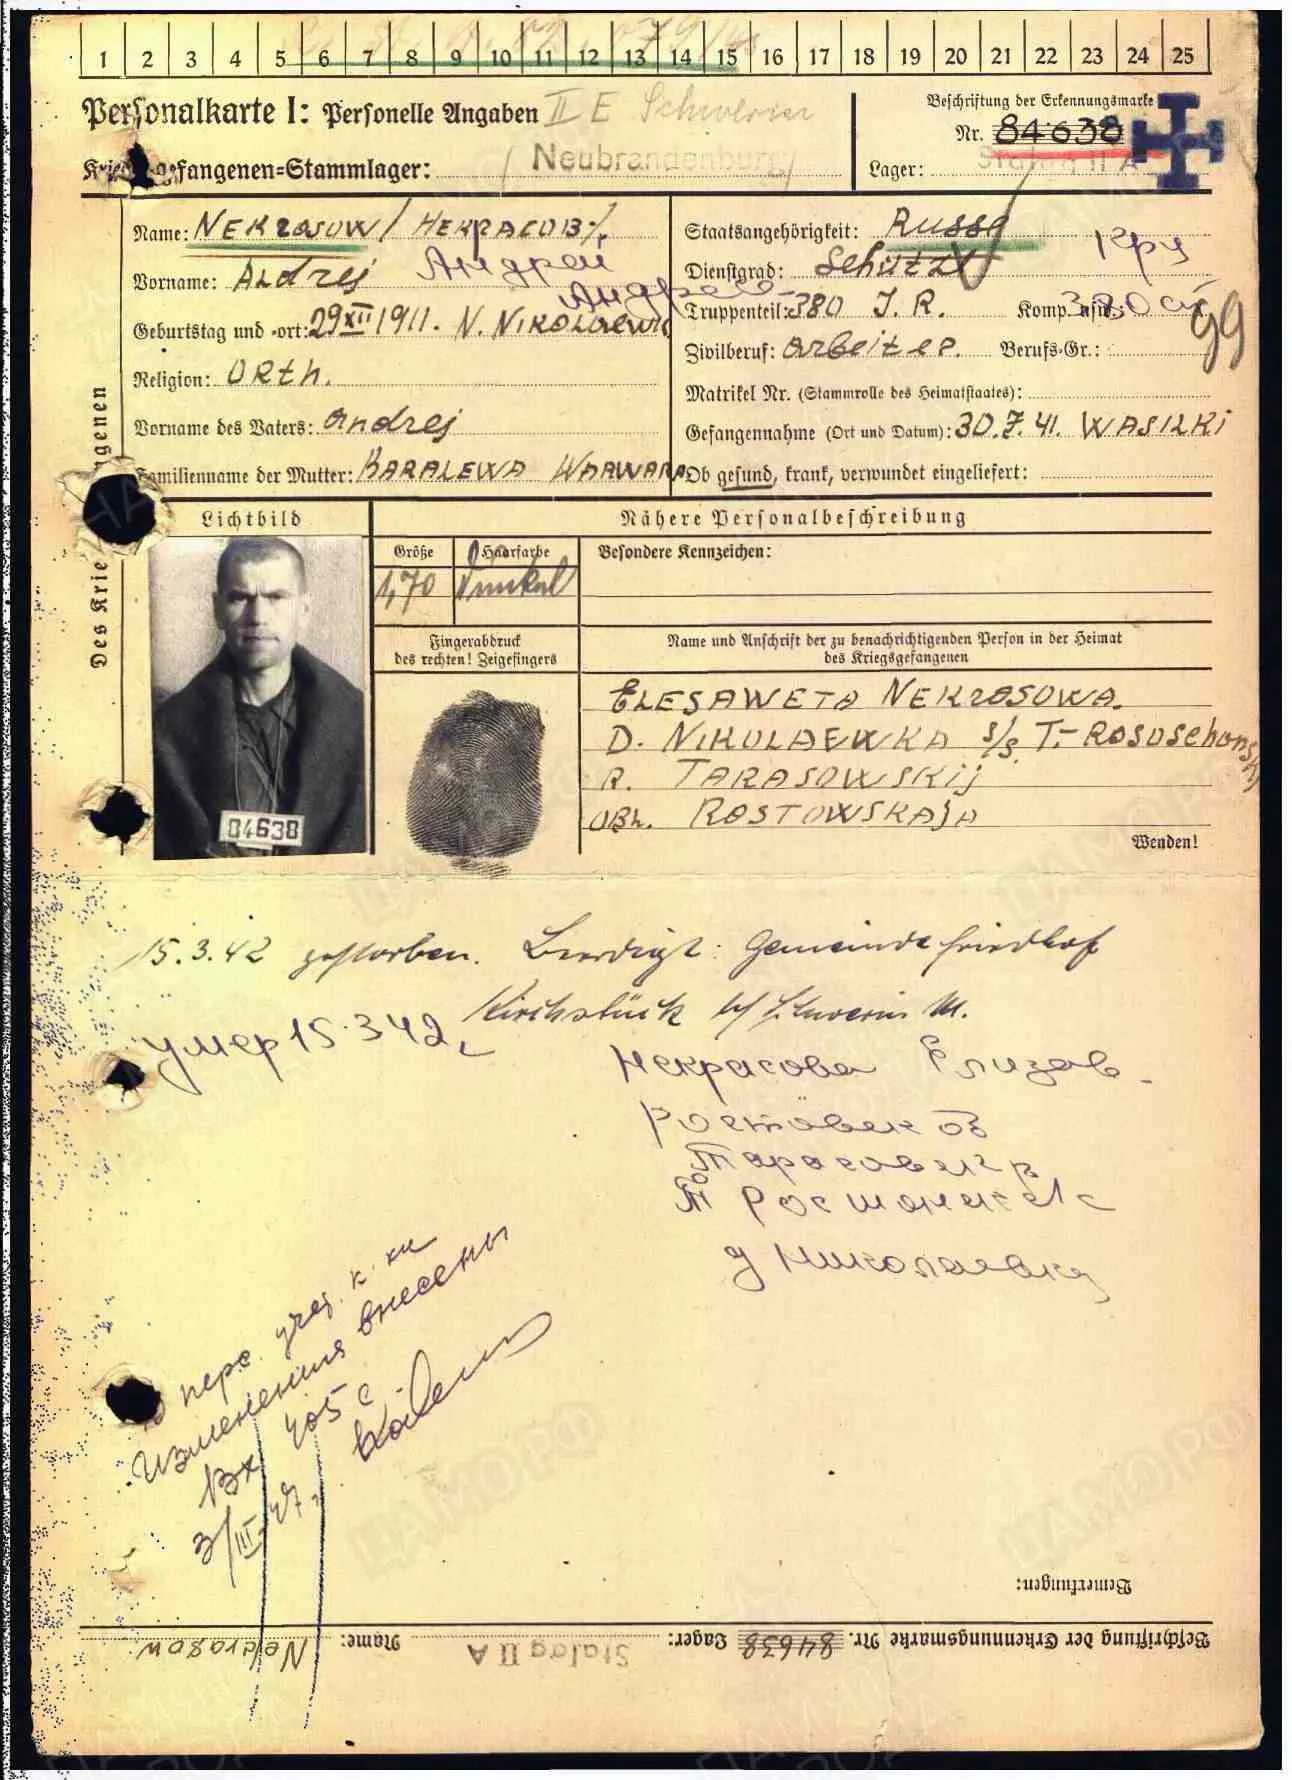 1 2 3 4 5 6 7 8 9 10 11 12 13 14 15 16 17 18 19 20 21 22 23 24 25
Personalkarte I: Personelle Angaben II E Schwerin
Beschriftung der Erkennungsmarke
Nr. 84638
Kriegsgefangenen=Stammlager: Neubrandenburg
Lager: Stalag II A
Des Krie genen
Name: NEKRASOW / НЕКРАСОВ /
Vorname: ALdrej Андрей
Андрее-
Geburtstag und =ort: 29 XII 1911. N. NIKOLAEWK
Religion: ORth.
Vorname des Vaters: Andrej
Familienname der Mutter: KARALEWA WARWARA
Staatsangehörigkeit: Russe
Dienstgrad: Schütze кр
Truppenteil: 380 J. R. Komp. 380
99
Zivilberuf: Arbeiter. Berufs-Gr.:
Matrikel Nr. (Stammrolle des Heimatstaates):
Gefangennahme (Ort und Datum): 30.7.41. WASILKI
Ob gesund, krank, verwundet eingeliefert:
Lichtbild
Nähere Personalbeschreibung
Größe Haarfarbe Besondere Kennzeichen:
1,70 Dunkel
Fingerabdruck
des rechten! Zeigefingers
Name und Anschrift der zu benachrichtigenden Person in der Heimat
des Kriegsgefangenen
ELESAWETA NEKRASOWA.
D. NIKOLAEWKA s/s. T.- ROSOSCHONSKI
R. TARASOWSKIJ
OBL. ROSTOWSKAJA
84638
Wenden!
15.3.42 gestorben. Beerdigt: Gemeindefriedhof
Kirchstück b/ Schwerin M.
умер 15.3 42 г
Некрасова Елизав.
Ростовск об
Тарасовск р
д Николаевка
перс. учет. к.
изменения внесены
Вх 405 с
3/III-47г.
Bemerkungen:
Beschriftung der Erkennungsmarke Nr. 84638 Lager: Stalag II A Name: Nekrasow
ЦАМО РФ